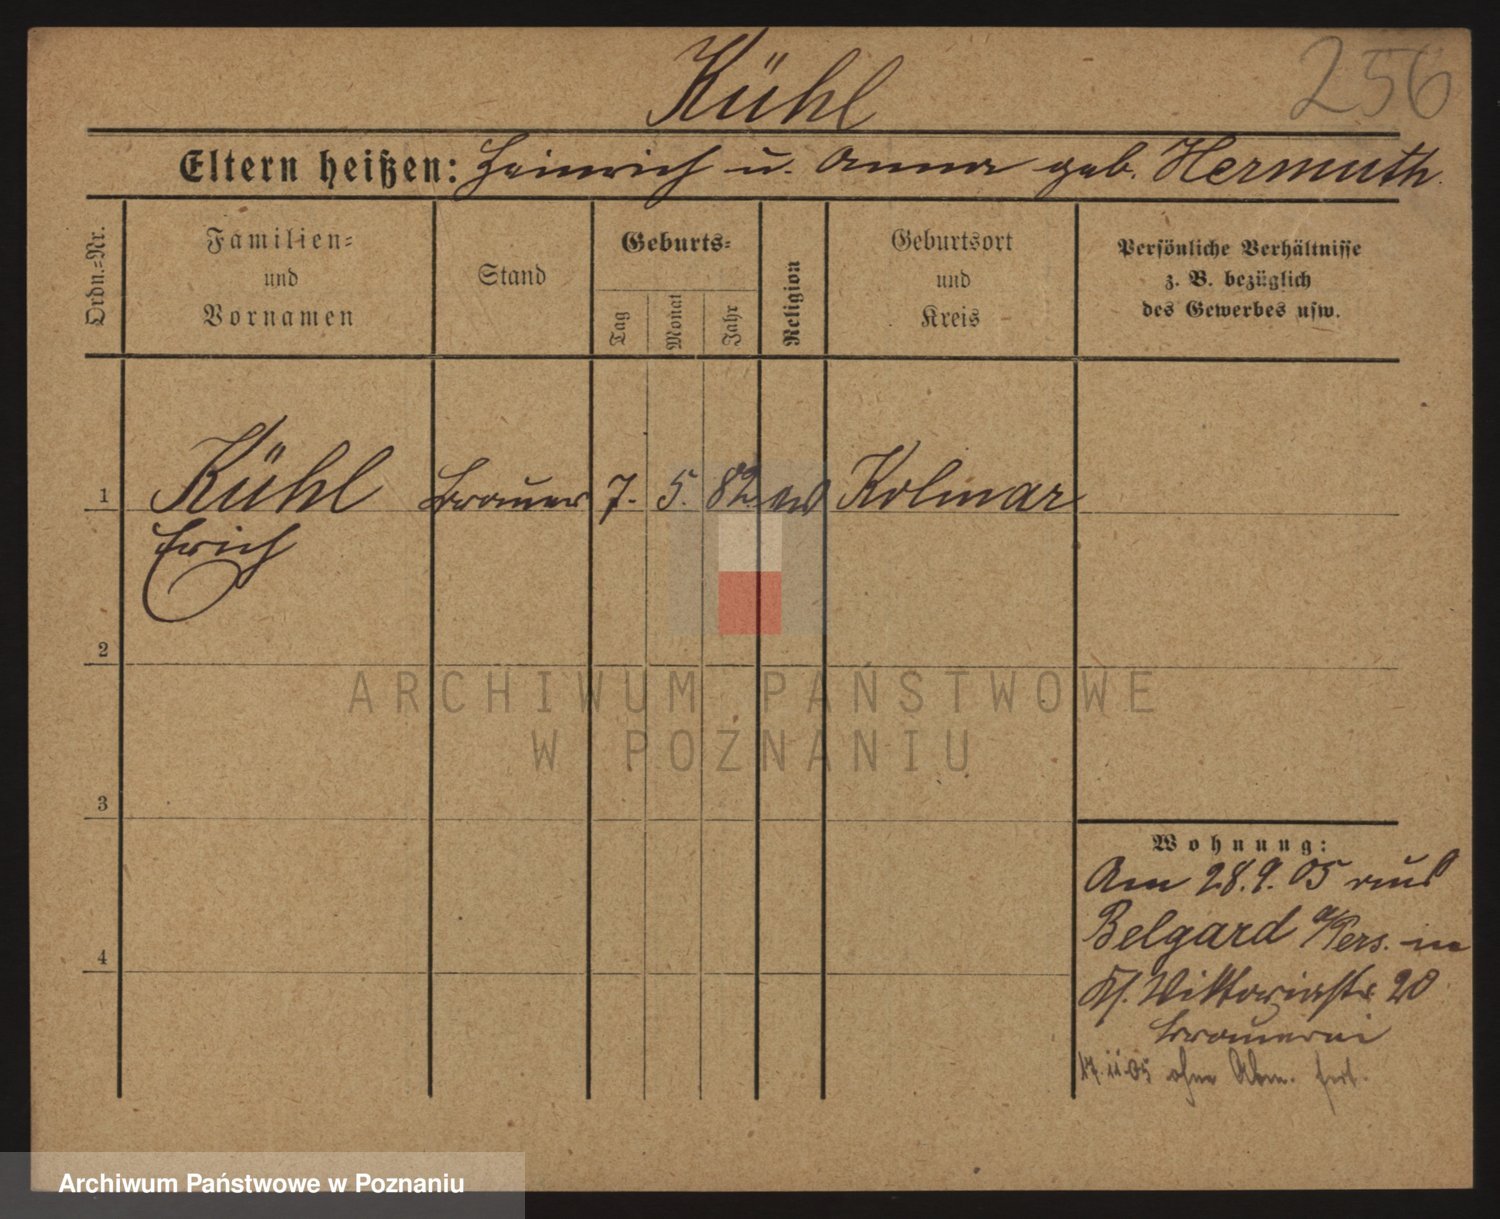 256
Kühl
Eltern heißen: Heinrich u. Anna geb. Hermuth.
Ordn.=Nr.
Familien=
und
Vornamen
Stand
Geburts=
Tag
Monat
Jahr
Religion
Geburtsort
und
Kreis
Persönliche Verhältnisse
z. B. bezüglich
des Gewerbes usw.
1 Kühl Brauer 7. 5. 82 ev Kolmar
Erich
2
ARCHIWUM PAŃSTWOWE
W POZNANIU
3
Wohnung:
Am 28.9.05 aus
Belgard a/Pers. in
4
Viktoriastr. 20
Brauerei
17.11.05 ohne Abm. fort.
Archiwum Państwowe w Poznaniu